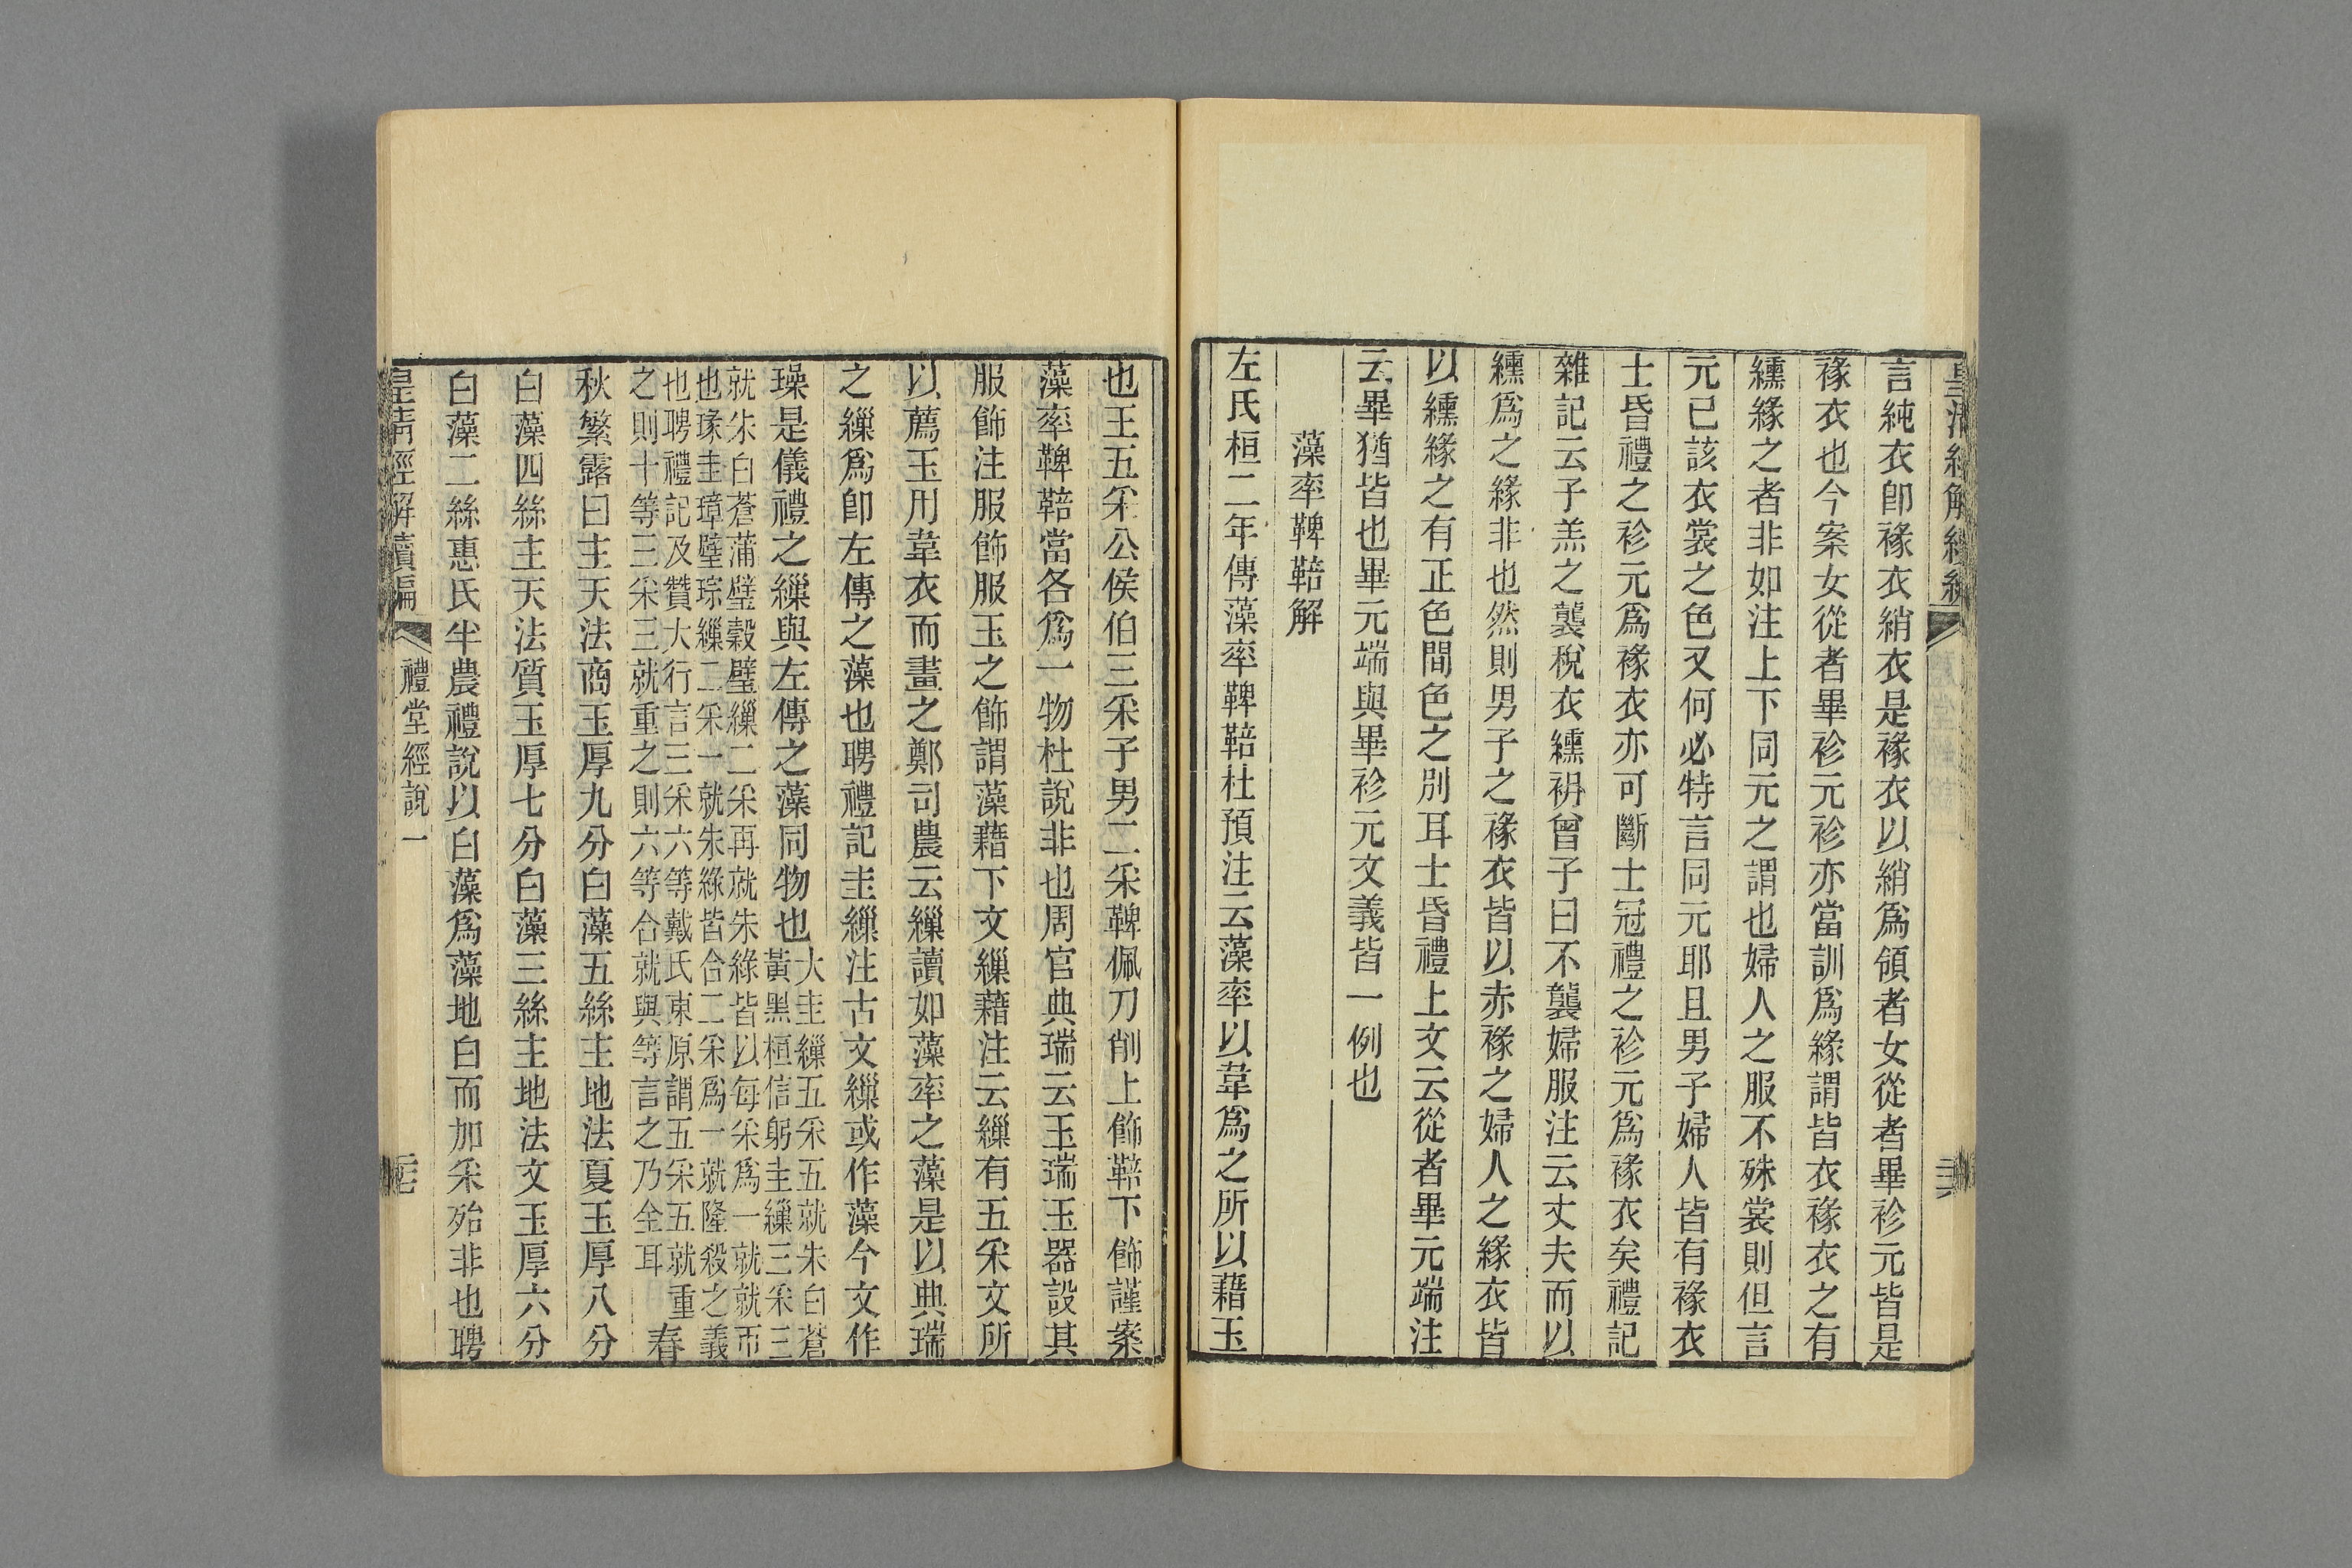 言純衣卽褖衣綃衣是褖衣以綃爲領者女從者畢袗元皆是
褖衣也今案女從者畢袗元袗亦當訓爲緣謂皆衣褖衣之有
纁緣之者非如注上下同元之謂也婦人之服不殊裳則但言
元已該衣裳之色又何必特言同元耶且男子婦人皆有褖衣
士昏禮之袗元爲褖衣亦可斷士冠禮之袗元爲褖衣矣禮記
雜記云子羔之襲稅衣纁袡曾子曰不襲婦服注云丈夫而以
纁爲之緣非也然則男子之褖衣皆以赤褖之婦人之緣衣皆
以纁緣之有正色間色之別耳士昏禮上文云從者畢元端注
云畢猶皆也畢元端與畢袗元文義皆一例也
藻率鞞鞛解
左氏桓二年傳藻率鞞鞛杜預注云藻率以韋爲之所以藉玉
也王五采公侯伯三采子男二采鞞佩刀削上飾鞛下飾謹案
藻率鞞鞛當各爲一物杜說非也周官典瑞云玉瑞玉器設其
服飾注服飾服玉之飾謂藻藉下文繅藉注云繅有五采文所
以薦玉用韋衣而畫之鄭司農云繅讀如藻率之藻是以典瑞
之繅爲卽左傳之藻也聘禮記圭繅注古文繅或作藻今文作
璪是儀禮之繅與左傳之藻同物也
大圭繅五采五就朱白蒼
黃黑桓信躬圭繅三采三
就朱白蒼蒲璧穀璧繅二采再就朱綠皆以每采爲一就就帀
也瑑圭璋璧琮繅二采一就朱綠皆合二采爲一就隆殺之義
也聘禮記及贊大行言三采六等戴氏東原謂五采五就重
之則十等三采三就重之則六等合就與等言之乃全耳
春
秋繁露曰主天法商玉厚九分白藻五絲主地法夏玉厚八分
白藻四絲主天法質玉厚七分白藻三絲主地法文玉厚六分
白藻二絲惠氏半農禮說以白藻爲藻地白而加采殆非也聘
皇淸經解續編
禮堂經說一